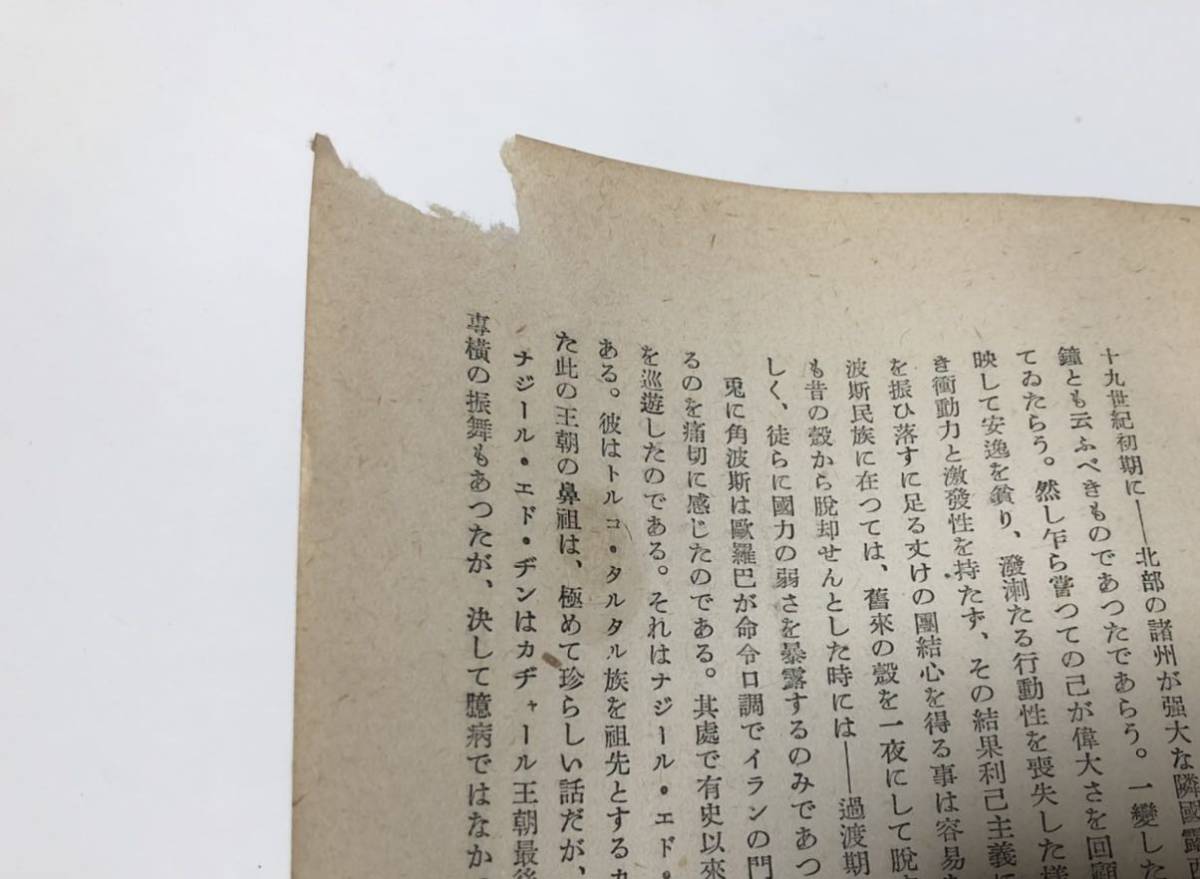 十九世紀初期に――北部の諸州が强大な隣國露西
鐘とも云ふべきものであつたであらう。一變した
てゐたらう。然し乍ら嘗つての己が偉大さを回顧
映して安逸を貪り、潑溂たる行動性を喪失した樣
き衝動力と激發性を持たず、その結果利己主義に
を振ひ落すに足る丈けの團結心を得る事は容易
波斯民族に在つては、舊來の殼を一夜にして脫
も昔の殼から脫却せんとした時には――過渡期
しく、徒らに國力の弱さを暴露するのみであつ
兎に角波斯は歐羅巴が命令口調でイランの門
るのを痛切に感じたのである。其處で有史以來
を巡遊したのである。それはナジール・エド・
ある。彼はトルコ・タルタル族を祖先とするカ
た此の王朝の鼻祖は、極めて珍らしい話だが、
ナジール・エド・ヂンはカヂャール王朝最後
專橫の振舞もあつたが、決して臆病ではなか